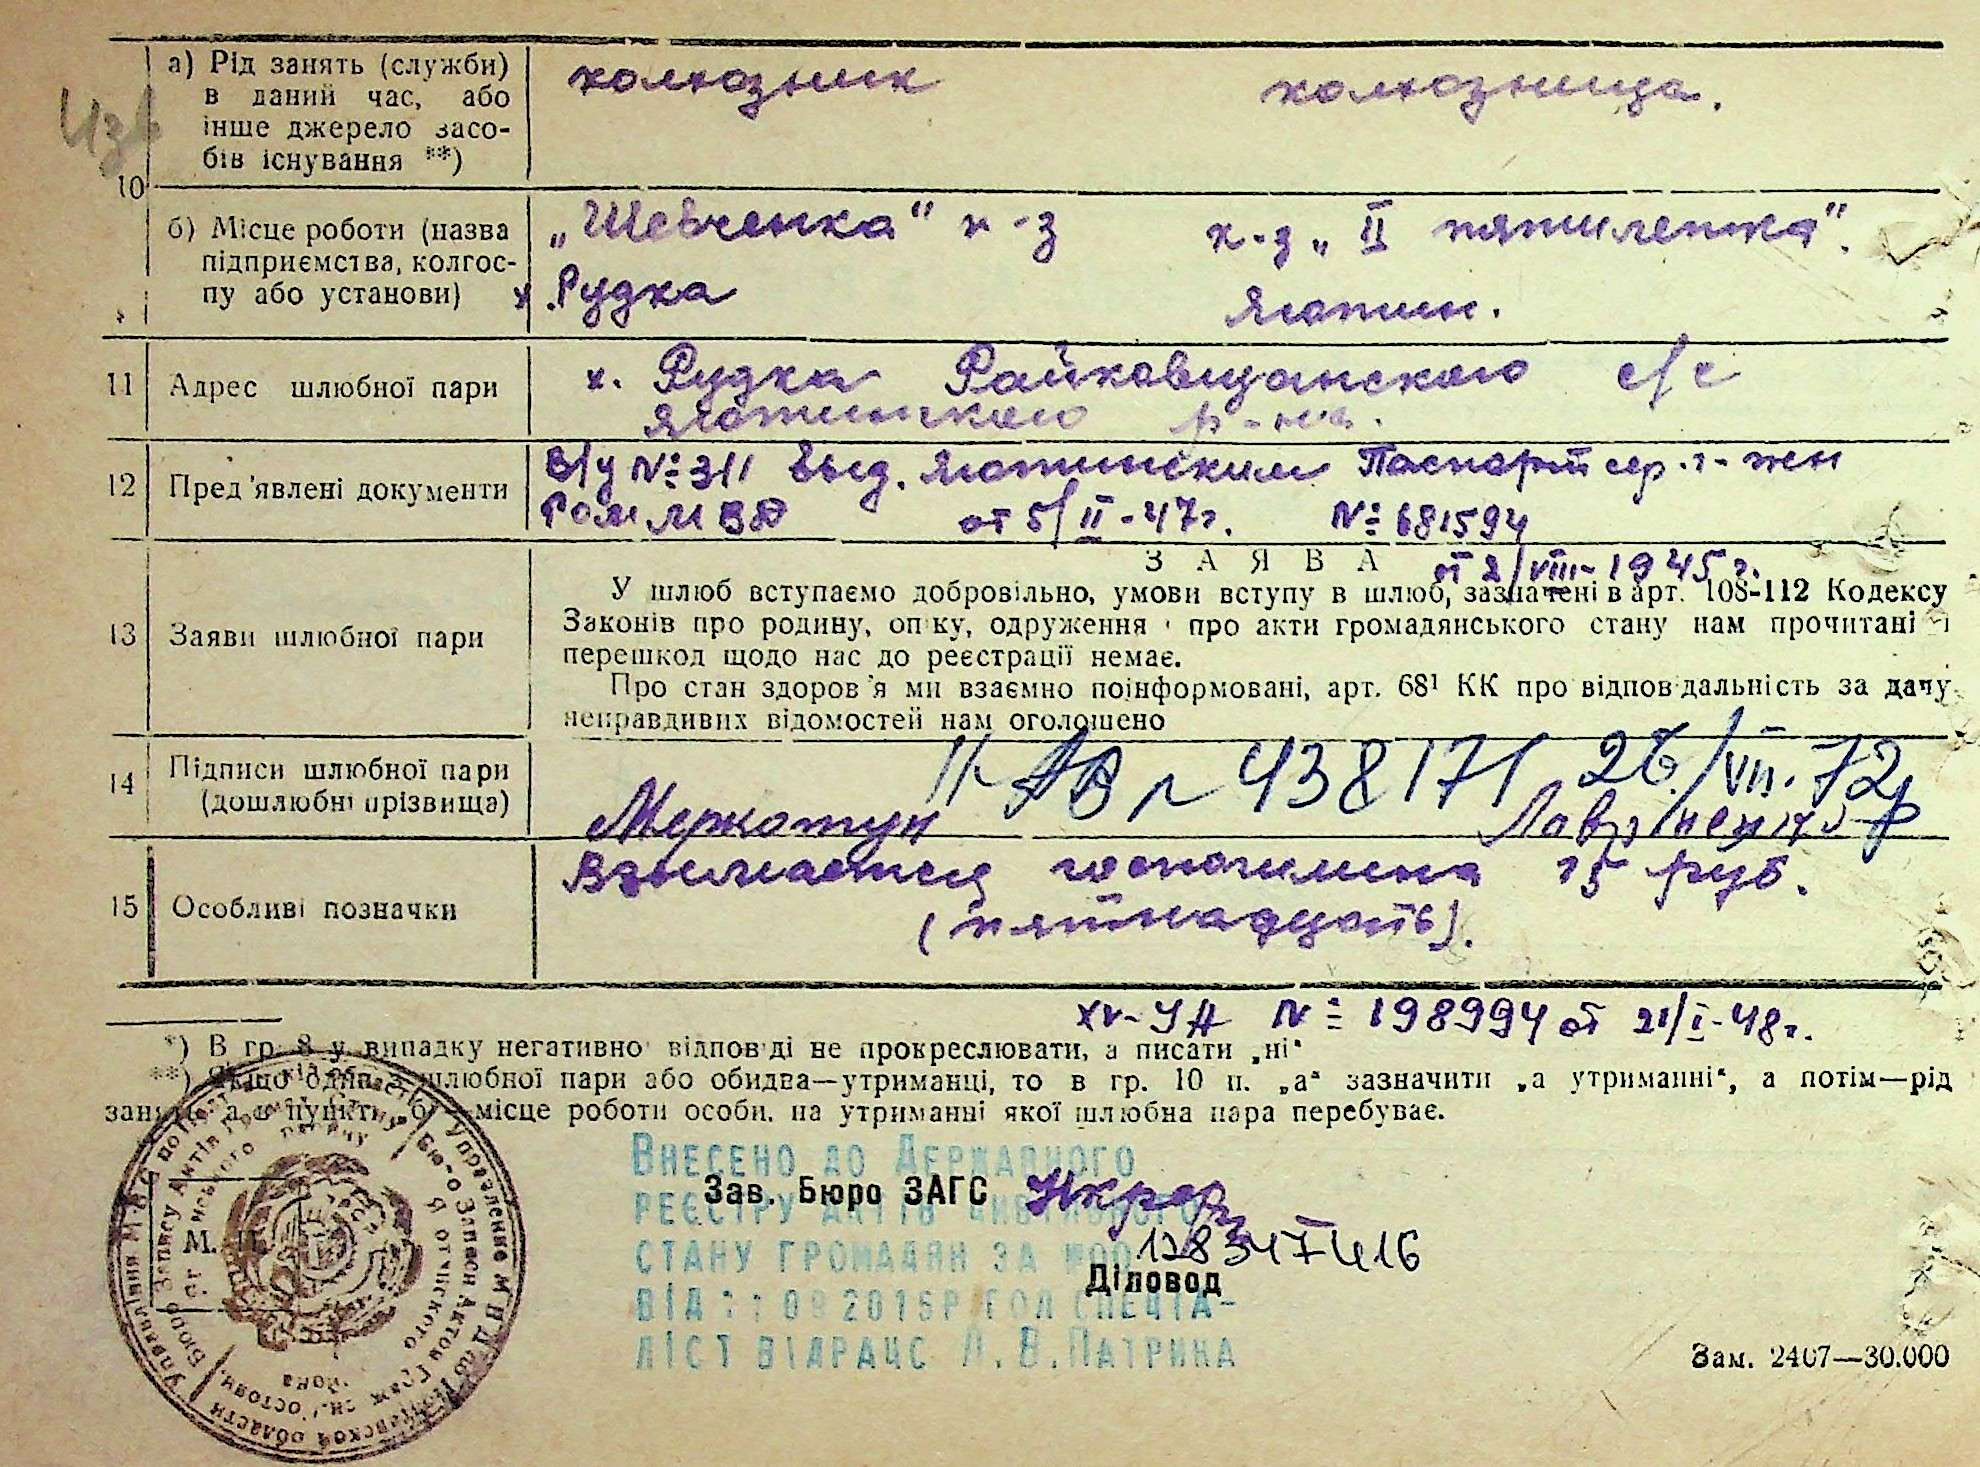 Изв
10
а) Рід занять (служби) в даний час, або інше джерело засобів існування **)
колхозник колхозница.
б) Місце роботи (назва підприємства, колгоспу або установи)
„Шевченка" к-з к-з „II пятилетка".
х. Рудка Яготин.
11 Адрес шлюбної пари
х. Рудка Райковщанского с/с
Яготинского р-на.
12 Пред'явлені документи
В/у №311 выд. Яготинским Паспорт сер.
РОМ МВД от 5/II-47г. № 681594
от 2/VIII-1945г.
З А Я В А
13 Заяви шлюбної пари
У шлюб вступаємо добровільно, умови вступу в шлюб, зазначені в арт. 108-112 Кодексу
Законів про родину, опіку, одруження і про акти громадянського стану нам прочитані і
перешкод щодо нас до реєстрації немає.
Про стан здоров'я ми взаємно поінформовані, арт. 68¹ КК про відповідальність за дачу
неправдивих відомостей нам оголошено
14 Підписи шлюбної пари
(дошлюбні прізвища)
438171 26/VII-72р
15 Особливі позначки
Взымается госпошлина 15 руб.
(пятнадцать).
XV-УА № 198994 от 21/I-48г.
*) В гр. 8 у випадку негативної відповіді не прокреслювати, а писати „ні"
**) Якщо один з шлюбної пари або обидва—утриманці, то в гр. 10 п. „а" зазначити „а утриманні", а потім—рід
занять, а в пункті „б"—місце роботи особи, на утриманні якої шлюбна пара перебуває.
Внесено до Державного
Зав. Бюро ЗАГС
реєстру актів цивільного
стану громадян за №00
12834
Діловод
гол спеціа-
ліст відрацс
М. П.
Зам. 2407—30.000